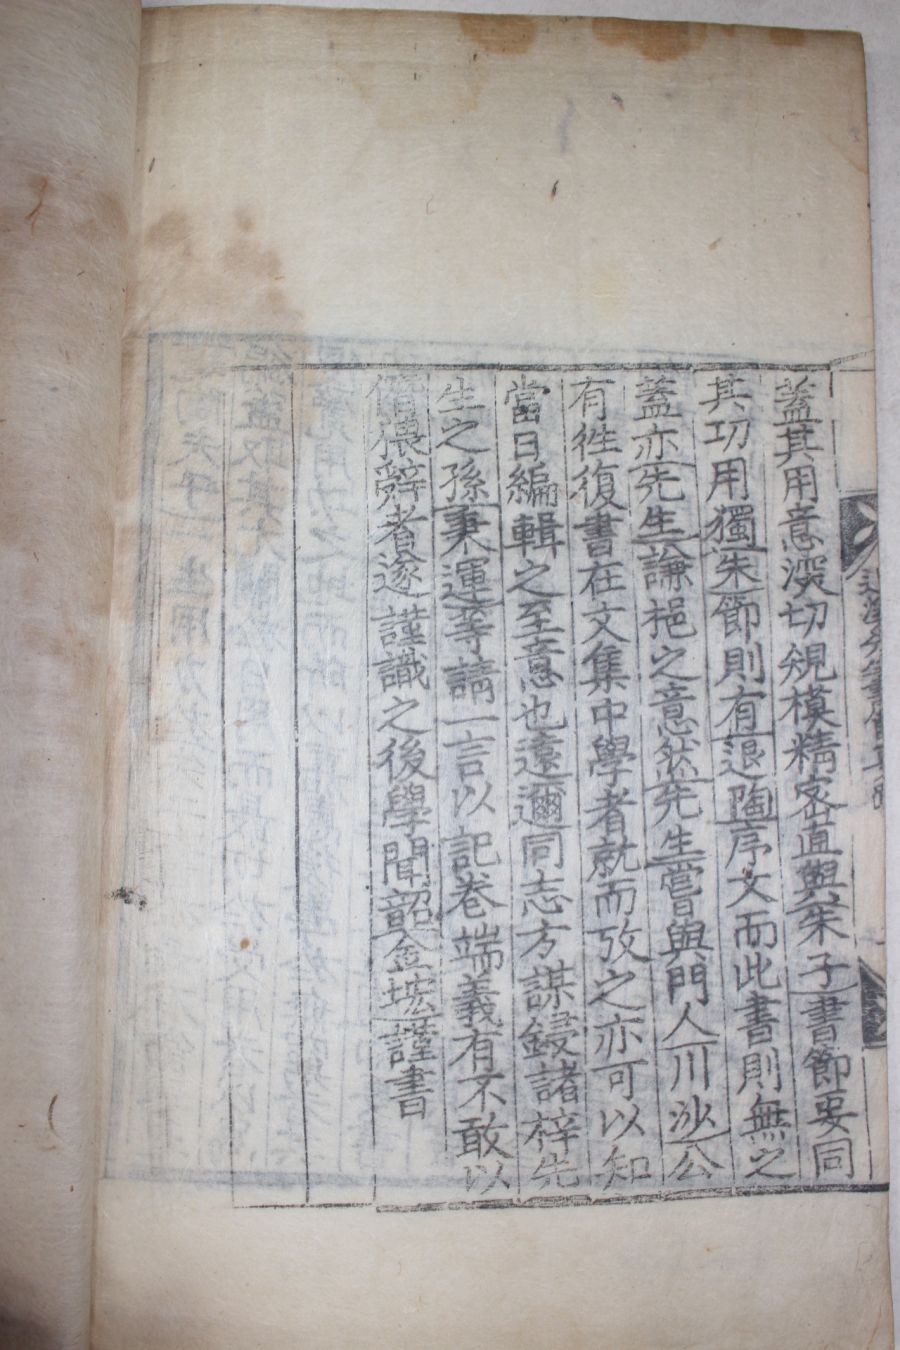 蓋其用意深切規模精密直與朱子書節要同
其功用獨朱節則有退陶序文而此書則無之
蓋亦先生謙挹之意然先生嘗與門人川沙公
有往復書在文集中學者就而攷之亦可以知
當日編輯之至意也遠邇同志方謀鋟諸梓先
生之孫秉運等請一言以記卷端義有不敢以
僭猥辭者遂謹識之後學聞韶金㙆謹書